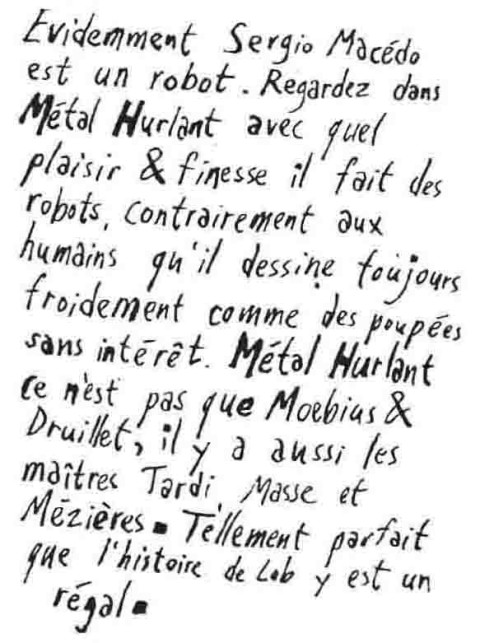 Evidemment Sergio Macédo
est un robot. Regardez dans
Métal Hurlant avec quel
plaisir & finesse il fait des
robots, contrairement aux
humains qu'il dessine toujours
froidement comme des poupées
sans intérêt. Métal Hurlant
ce n'est pas que Moebius &
Druillet, il y a aussi les
maîtres Tardi, Masse et
Mézières. Tellement parfait
que l'histoire de Lob y est un
régal.